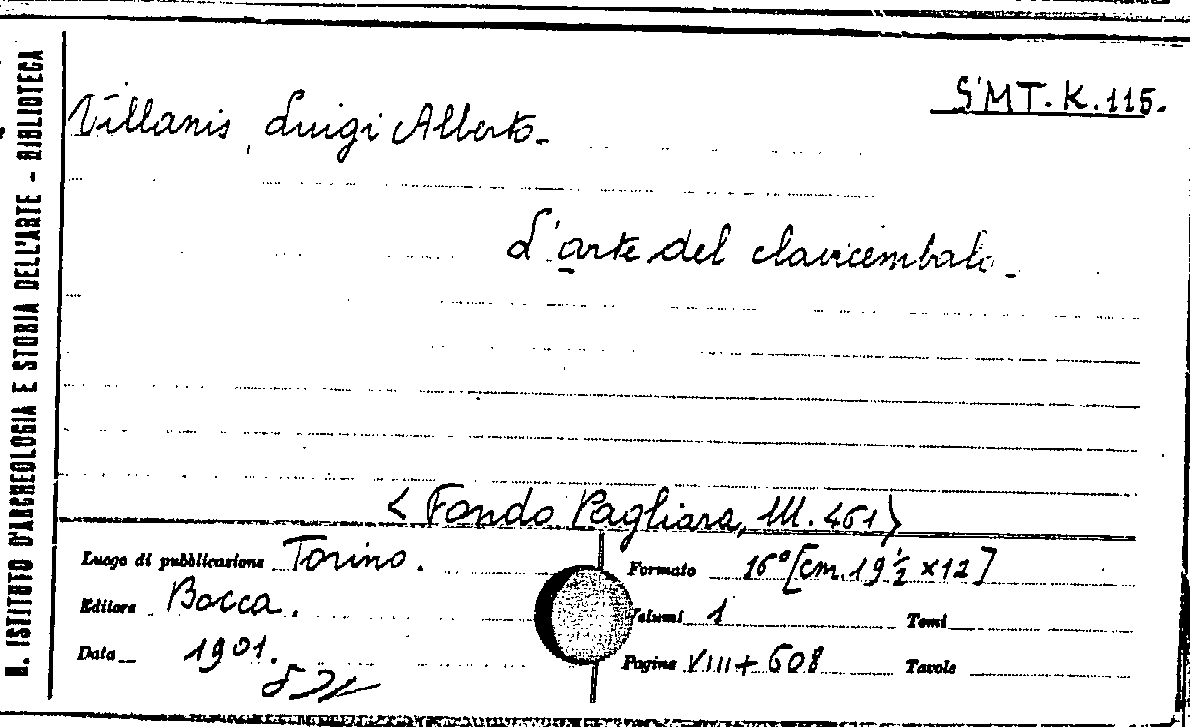 R. ISTITUTO D'ARCHEOLOGIA E STORIA DELL'ARTE - BIBLIOTECA
SMT. K. 115.
Villanis, Luigi Alberto.
L'arte del clavicembalo.
<Fondo Pagliara, III. 461>
Luogo di pubblicazione Torino.
Editore Bocca.
Data 1901.
Formato 16° [cm. 19 ½ x 12]
Volumi 1 Tomi
Pagine VIII + 608 Tavole